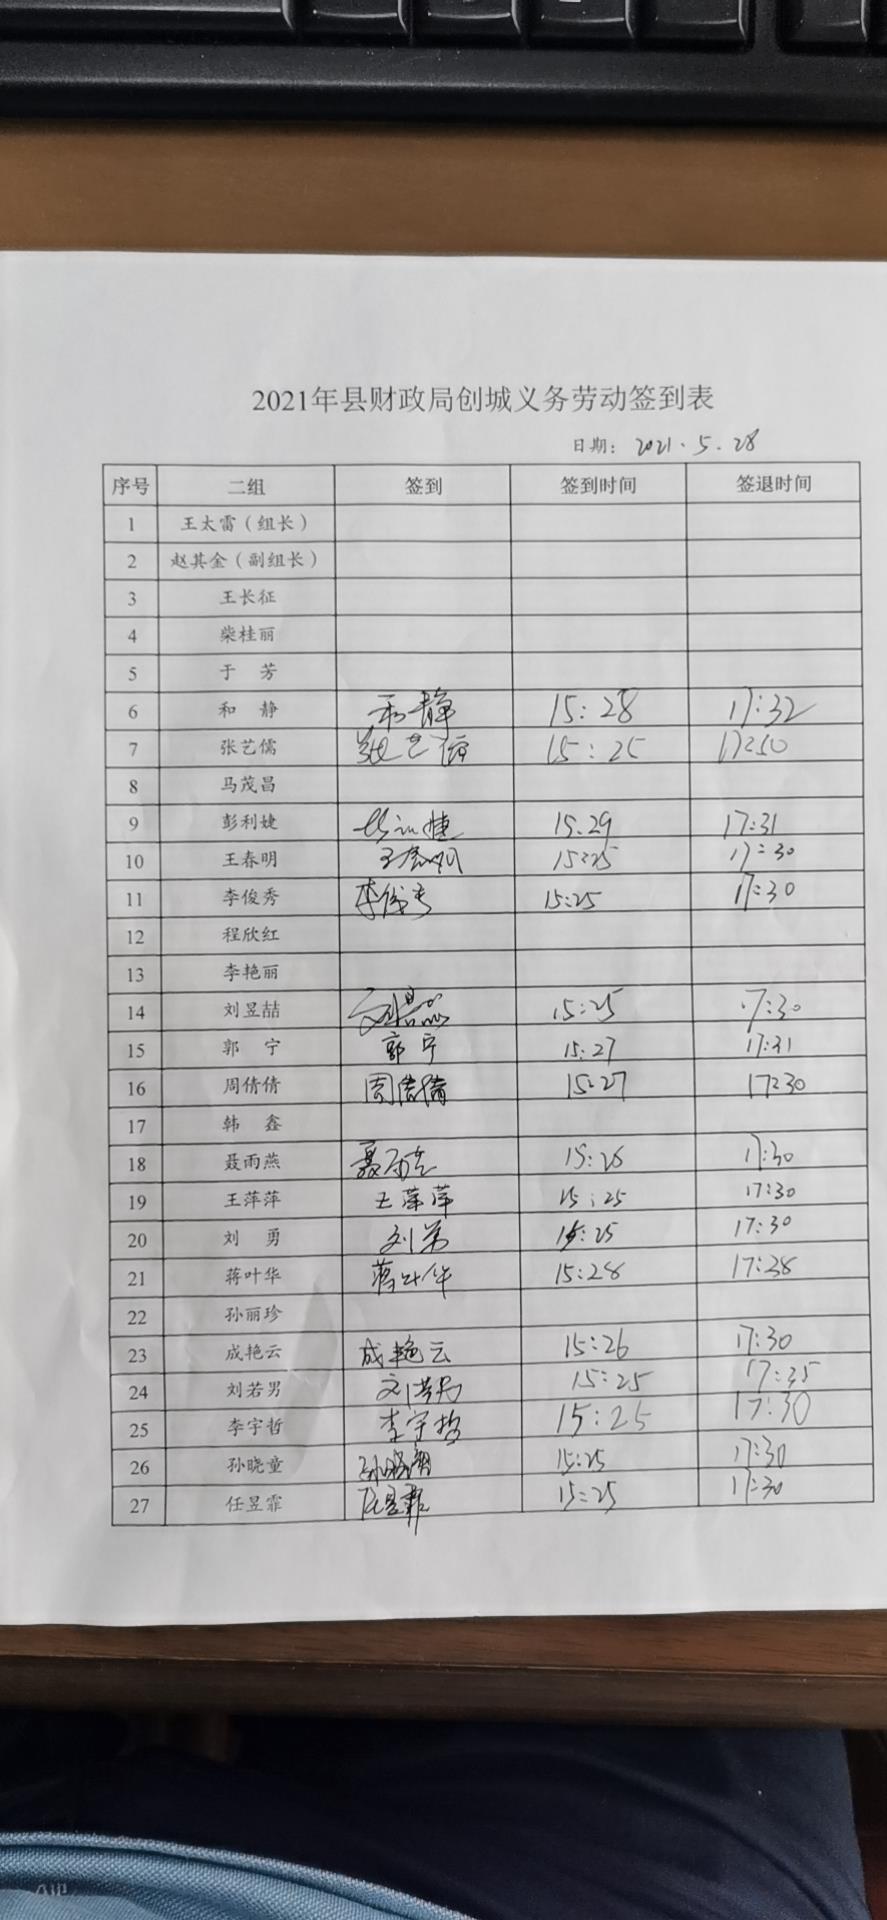 2021年县财政局创城义务劳动签到表
日期: 2021.5.28
序号 二组 签到 签到时间 签退时间
1 王太雷(组长)
2 赵其金(副组长)
3 王长征
4 柴桂丽
5 于 芳
6 和 静 和静 15:28 17:32
7 张艺儒 张艺儒 15:25 17:50
8 马茂昌
9 彭利婕 15.29 17:31
10 王春明 王春明 15:25 17:30
11 李俊秀 李俊秀 15:25 17:30
12 程欣红
13 李艳丽
14 刘昱喆 刘昱喆 15:25 17:30
15 郭 宁 郭宁 15:27 17:31
16 周倩倩 周倩倩 15:27 17:30
17 韩 鑫
18 聂雨燕 聂雨燕 15:26 17:30
19 王萍萍 王萍萍 15:25 17:30
20 刘 勇 刘勇 15:25 17:30
21 蒋叶华 蒋叶华 15:28 17:38
22 孙丽珍
23 成艳云 成艳云 15:26 17:30
24 刘若男 刘若男 15:25 17:35
25 李宇哲 李宇哲 15:25 17:30
26 孙晓童 孙晓童 15:25 17:30
27 任昱霏 任昱霏 15:25 17:30